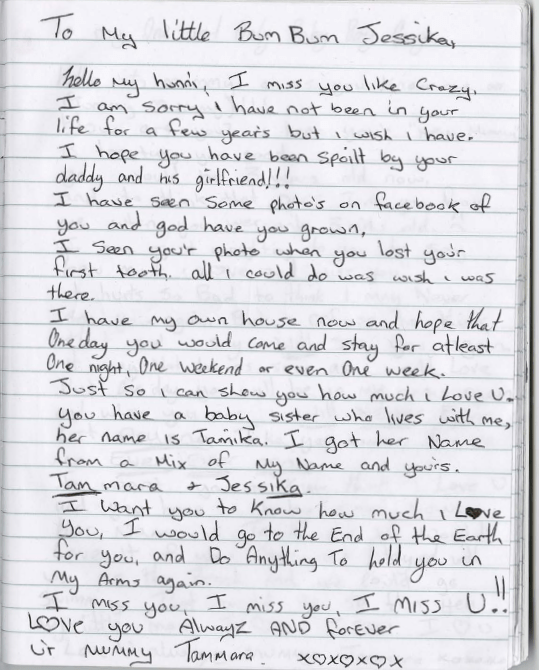 To My little Bum Bum Jessika,
hello my hunni, I miss you like Crazy.
I am sorry i have not been in your
life for a few years but i wish i have.
I hope you have been spoilt by your
daddy and his girlfriend!!!
I have seen some photo's on facebook of
you and god have you grown,
I seen you'r photo when you lost you'r
first tooth. all i could do was wish i was
there.
I have my own house now and hope that
One day you would come and stay for atleast
One night, One weekend or even One week.
Just so i can show you how much i Love U.
you have a baby sister who lives with me,
her name is Tamika. I got her Name
from a Mix of My Name and yours.
Tammara + Jessika.
I Want you to Know how much i Love
You, I would go to the End of the Earth
for you, and Do Anything To hold you in
My Arms again.
I miss you, I miss you, I MISS U.!!
L♡ve you Alwayz AND forever
U'r MUMMY Tammara. x♡x♡x♡x